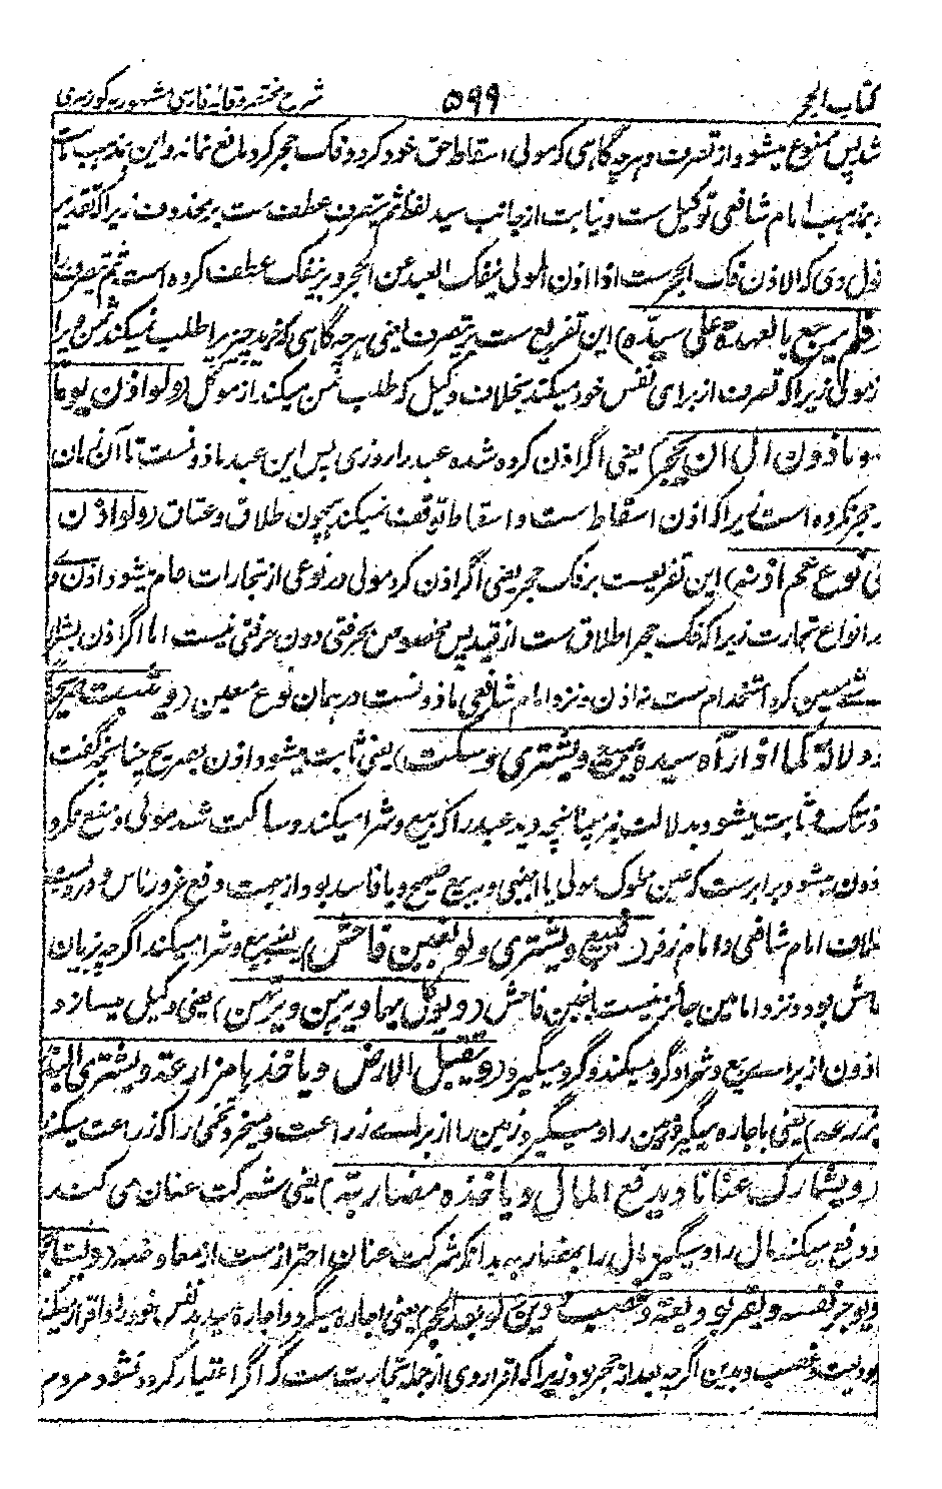 کتاب الحجر ۵۹۹ شرح مختصر وقایه فارسی مشهور به کور میری
شد پس ممنوع میشود از تصرف و هر چه گاهی که مولی اسقاط حق خود کرد و فک حجر کرد مانع نمانه و این مذهب ماست
و بمذهب امام شافعی توکیل ست و نیابت از جانب سید لفظ ثم یتصرف عطف ست بر محذوف زیرا که تقدیر
قول وی که الاذن فک الحجرست اذا اذن المولی ینفک العبد عن الحجر و بر ینفک عطف کرده است ثم یتصرف را
(فلم یرجع بالعهدة علی سیده) این تفریع ست بر یتصرف یعنی هر چه گاهی که خرید چیز یرا طلب نمیکند ثمن ویرا
از مولی زیرا که تصرف از برای نفس خود میکند بخلاف وکیل که طلب ثمن میکند از موکل (ولو اذن یوما
فهو ماذون الی ان یحجر) یعنی اگر اذن کرده شده عبد را روزی پس این عبد ماذونست تا آن زمان
حجر نکرده است زیرا که اذن اسقاط ست و اسقاطا توقف نمیکند همچون طلاق و عتاق (ولو اذن
فی نوع عم اذنه) این تفریعست بر فک حجر یعنی اگر اذن کرد مولی در نوعی از تجارات عام میشود اذن
در انواع تجارت زیرا که فک حجر اطلاق ست از قید پس مخصوص بحرفتی دون حرفتی نیست اما اگر اذن بشرای
شے معین کرد استخدام ست نه اذن و نزد امام شافعی ماذونست در همان نوع معین (ویثبت صریحا
ودلالة کما اذا رآه سیده یبیع ویشتری وسکت) یعنی ثابت میشود اذن بصریح چنانچه گفت
اذنتک و ثابت میشود بدلالت نیز چنانچه دید عبد را که بیع و شرا میکند و ساکت شد مولی و منع نکرد
ماذون میشود برابرست که عین مملوک مولی یا اجنبی و ببیع صحیح و یا فاسد بود از جهت دفع غرور ناس
خلاف امام شافعی و امام زفر (فیبیع ویشتری ولو بغبن فاحش) یعنی بیع و شرا میکند اگرچه بزیان
فاحش بود و نزد امامین جائز نیست بغبن فاحش (ویوکل بهما ویرهن ویرتهن) یعنی وکیل میسازد
ماذون از براے بیع و شرا و گرو میکند و گرو میگیرد (ویتقبل الارض ویاخذها مزارعة ویشتری البذر
یزرعه) یعنی باجاره میگیرد زمین را و میگیرد زمین را از براے زراعت و میخرد تخمی را که زراعت میکند
(ویشارک عنانا ویدفع المال ویاخذه مضاربة) یعنی شرکت عنان می کند
و دفع میکند مال را و میگیرد مال را بمضاربه بدانکه شرکت عنان احترازست از مفاوضه (ویستاجر
ویوجر نفسه ویقر بودیعة وغصب ودین لو بعد الحجر) یعنی اجاره میگیرد و اجاره میدهد نفس خود را و اقرار میکند
بودیعت و غصب و بدین اگرچه بعد از حجر بود زیرا که اقرار وی از جمله تجارت ست که اگر اعتبار کرده نشود مردم